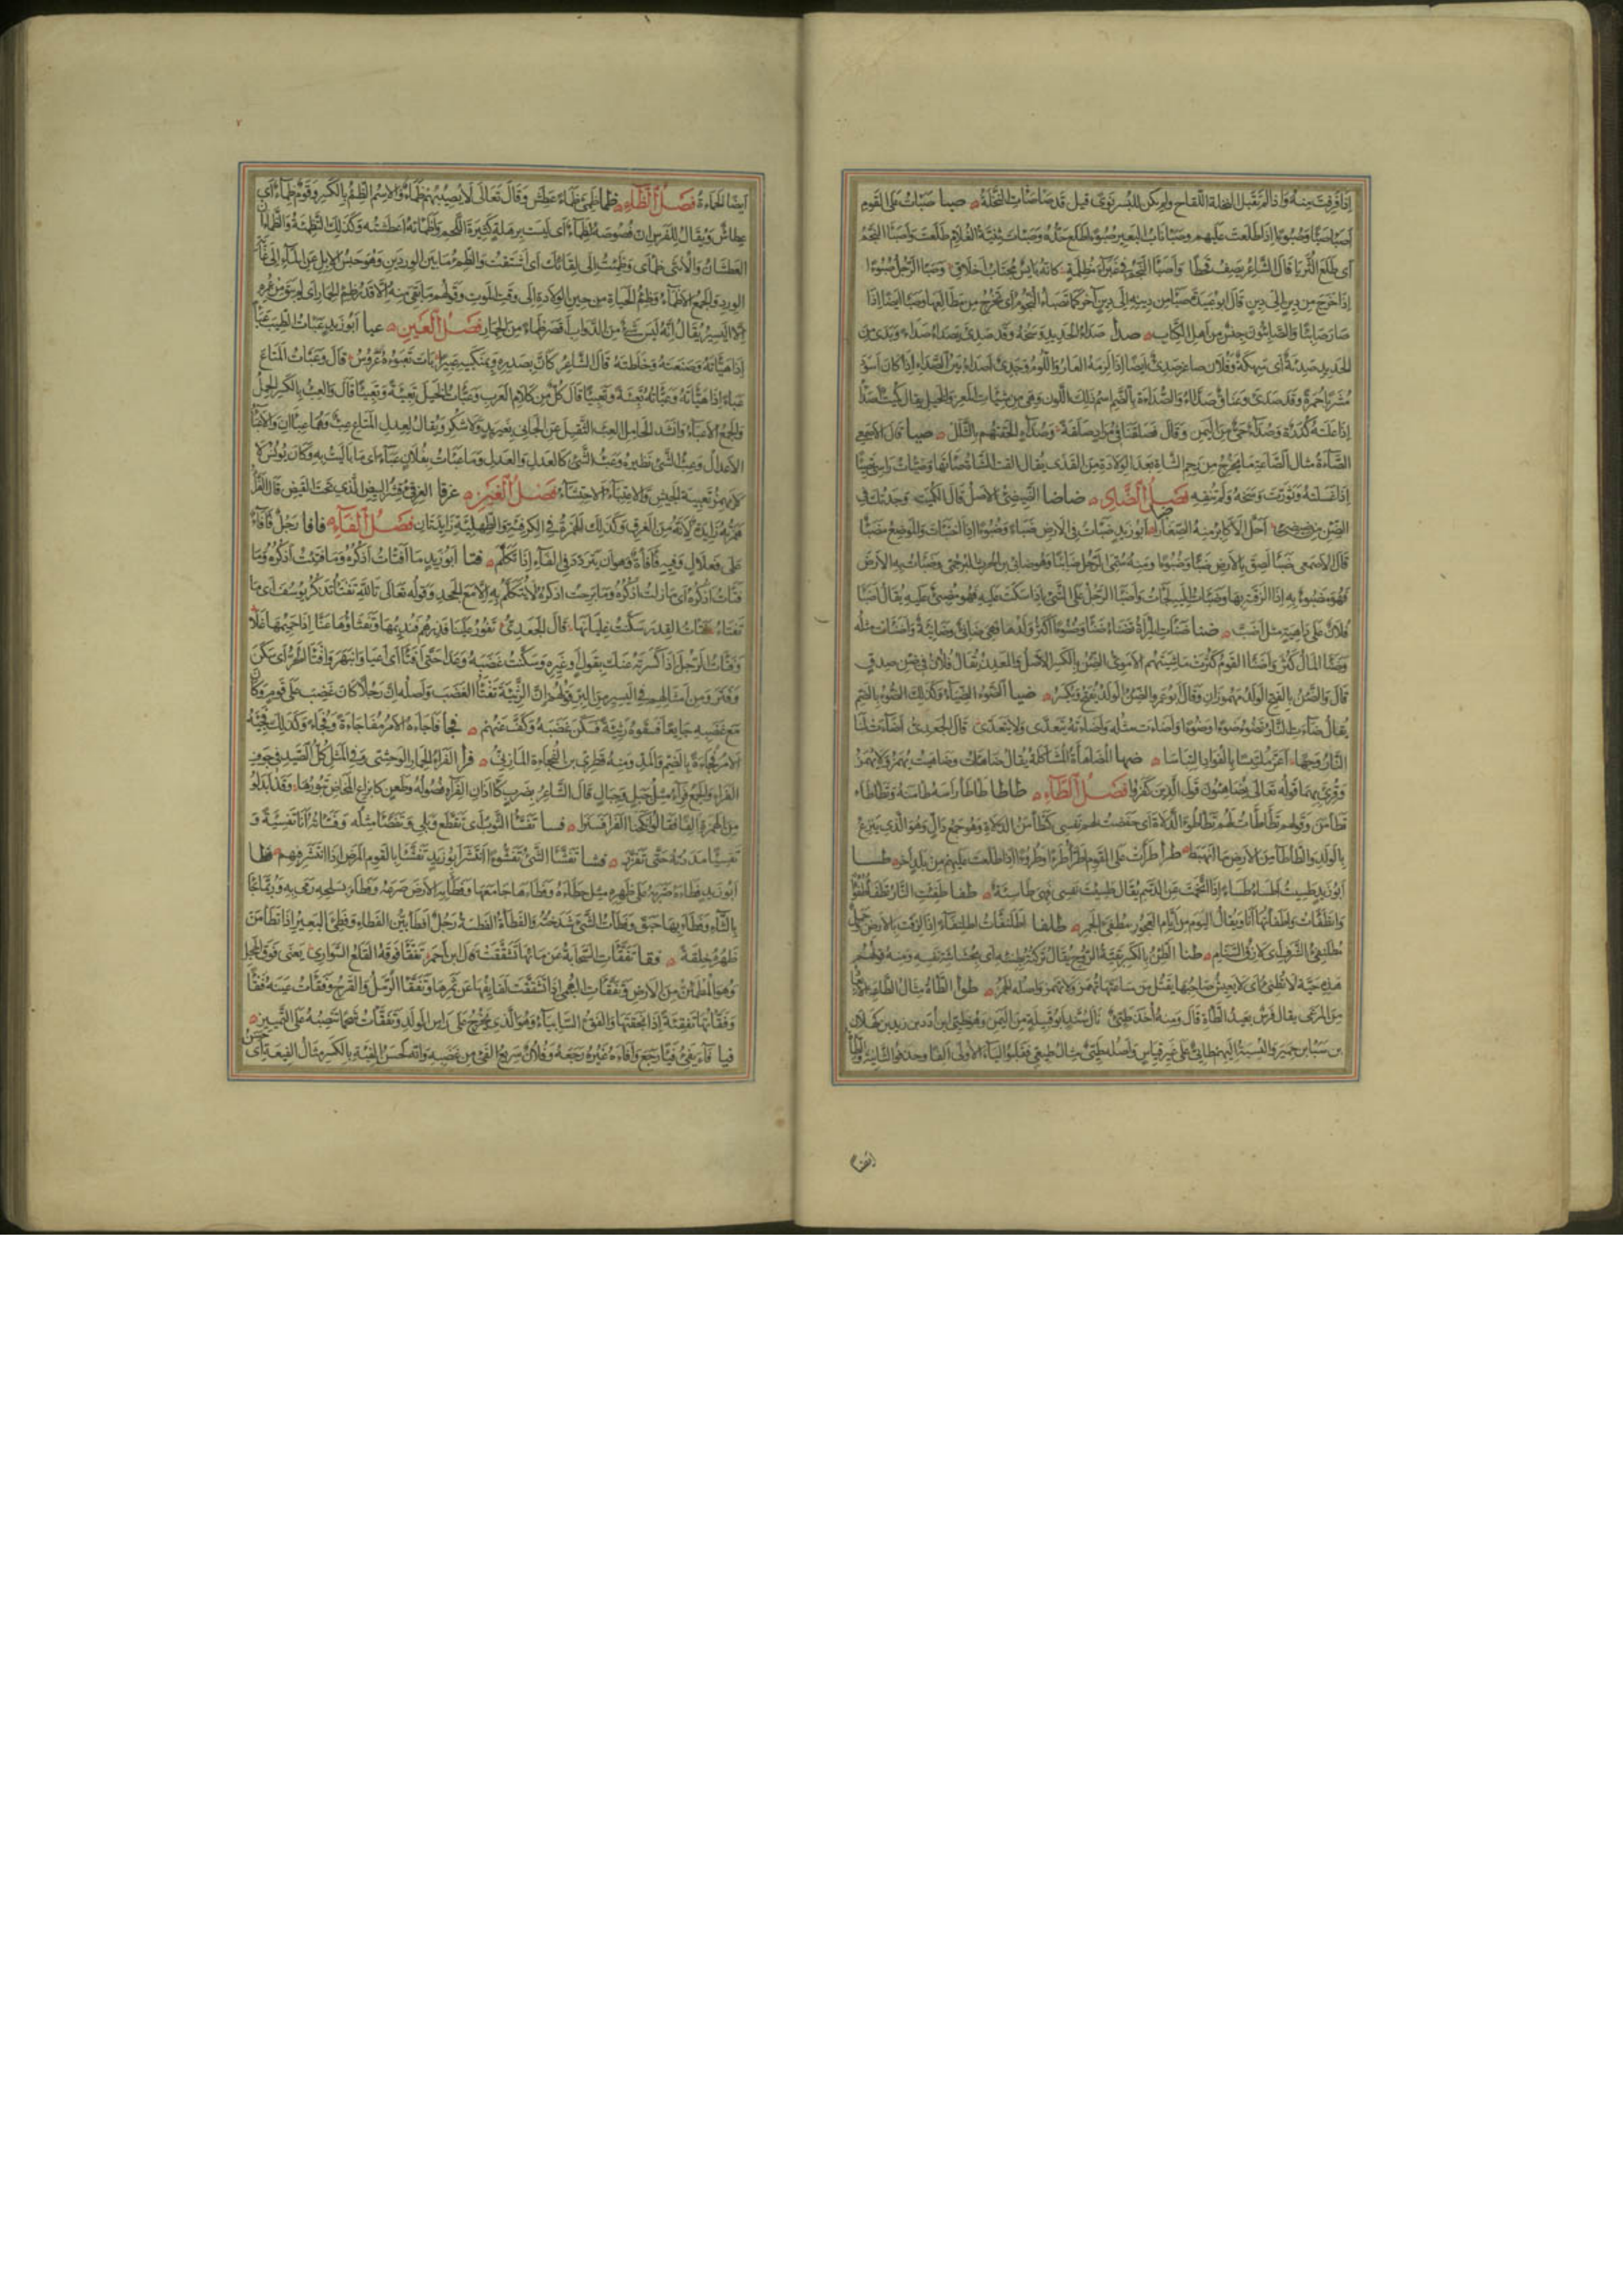 إذا فرقت منه وإذا لم تقبل النخلة اللقاح ولم يكن للبسر نوى قيل قد صاصات النخلة صبا صبات على القوم
اصبا صبا وصبوءا إذا طلعت عليهم وصبا ناب البعير صبوءا طلع حده وصبات ثنية الغلام طلعت واصبا النجم
اى طلع الثريا قال الشاعر يصف قحطا واصبا النجم في غبراء مظلمة كانه بايس مجتاب اخلاق وصبا الرجل صبوءا
اذا خرج من دين الى دين قال ابو عبيدة صبا من دينه الى دين آخر كما تصبا النجوم اى تخرج من مطالعها وصبا ايضا اذا
صار صابئا والصابئون جنس من اهل الكتاب صدا صداء الحديد وسخه وقد صدئ يصدا صداء ويدى من
الحديد صدئة اى سهكة وفلان صاغر صدئ ايضا اذا لزمه العار واللوم وجدى اصدا بين الصداء اذا كان اسود
مشربا حمرة وقد صدئ وعناق صداء والصداة بالضم اسم ذلك اللون وهي من شيات المعز والخيل يقال كميت اصدا
اذا علته كدرة وصداء حى من اليمن وقال فصلقنا في مراد صلقة وصداء الحقتهم بالثلل صيا قال الاصمعي
الصاءة مثال الصاعة ما يخرج من رحم الشاة بعد الولادة من القذى يقال القت الشاة صاءتها وصيات راسى تصييئا
اذا غسلته وثورت وسخه ولم تنقه فصل الضاد ضاضا الضئضئ الاصل قال الكميت وجدتك في
الضن من ضئضئ احل الاكابر منه الصغارا ضبا ابو زيد ضبات في الارض ضبا وضبوءا اذا اختبات والموضع مضبا
قال الاصمعي ضبا لصق بالارض ضبا وضبوءا ومنه سمى الرجل ضابئا وهو ضابئ بن الحرث البرجمي وضبات به الارض
فهو مضبوء به اذا الزقته بها وضبات اليه لجات واضبا الرجل على الشئ اذا سكت عليه فهو مضبئ عليه يقال اضبا
فلان على داهية مثل اضب ضنا ضنات المراة تضناء ضنا وضنوءا كثر ولدها فهي ضانئ وضانئة واضنات مثله
وضنا المال كثر واضنا القوم كثرت ماشيتهم الاموى الضن بالكسر الاصل والمعدن يقال فلان في ضن صدق
قال والضن بالفتح الولد مهموزان وقال ابو عمرو الضن الولد يفتح ويكسر ضيا الضوء الضياء وكذلك الضوء بالضم
يقال ضاءت النار تضوء ضوءا وضوءا واضاءت مثله واضاءته يتعدى ولا يتعدى قال الجعدى اضاءت لنا
النار وجها اغر ملتبسا بالفؤاد التباسا ضها المضاهاة المشاكلة يقال ضاهات وضاهيت يهمز ولا يهمز
وقرى بهما قوله تعالى يضاهئون قول الذين كفروا فصل الطاء طاطا طاطا راسه طامنه وتطاطاء
تطامن وقولهم تطاطات لهم تطاطؤ الدلاة اى خفضت لهم نفسى كتطامن الدلاة وهو جمع دال وهو الذى ينزع
بالدلو والطاطاء من الارض ما انهبط طرا طرات على القوم اطرا طرءا وطروءا اذا طلعت عليهم من بلد آخر طسا
ابو زيد طسئت اطساء طساء اذا اتخمت عن الدسم يقال طسئت نفسى فهى طاسئة طفا طفئت النار تطفا طفوءا
وانطفات واطفاتها انا ويقال اليوم من ايام العجوز مطفئ الجمر طلفا اطلنفات اطلنفاء اذا الزقت بالارض جمل
مطلنفئ الشرف اى لازق السنام طنا الطن بالكسر بقية الروح يقال تركته بطنئه اى بحشاشة نفسه ومنه قولهم
هذه حية لا تطنئ اى لا يعيش صاحبها يقتل من ساعتها تهمز ولا تهمز واصله الهمز طوا الطاة مثال الطاعة الابعاد
في المرعى يقال فرس بعيد الطاة قال ومنه اخذ طيئ قال سيد ابو قبيلة من اليمن وهو طيئ ابن ادد بن زيد بن كهلان
بن سبا بن حمير والنسبة اليهم طائى على غير قياس واصله طيئى مثال طيعى فقلبوا الياء الاولى الفا وحذفوا الثانية والطاة
ايضا
ايضا الحماءة فصل الظاء ظما ظمئ ظماء عطش وقال تعالى لا يصيبهم ظماء والاسم الظم بالكسر وقوم ظماء اى
عطاش ويقال للفرس ان فصوصه لظماء اى ليست برهلة كثيرة اللحم واظماته اعطشته وكذلك التظمئة والظمان
العطشان والانثى ظماى وظمئت الى لقائك اى اشتقت والظم ما بين الوردين وهو حبس الابل عن الماء الى غاية
الورد والجمع الاظماء وظم الحياة من حين الولادة الى وقت الموت وقولهم ما بقى منه الا قدر ظم الحمار اى لم يبق من عمره
الا اليسير يقال انه ليس شئ من الدواب اقصر ظماء من الحمار فصل العين عبا ابو زيد عبات الطيب عبا
اذا هياته وصنعته وخلطته قال الشاعر كان بصدره وبمنكبيه عبيرا بات تعبوءه عروس قال وعبات المتاع
عباء اذا هياته وعباته تعبئة وتعبيئا قال كل من كلام العرب وعبات الخيل تعبئة وتعبيئا قال والعب بالكسر الحمل
والجمع الاعباء وانشد الحامل العب الثقيل عن الجاني بغير يد ولا شكر ويقال لعدل المتاع عب وهما عبان والاعباء
الاعدال وعب الشئ نظيره وعب الشئ كالعدل والعدل وما عبات بفلان عباء اى ما باليت به وكان يونس لا
يهمز تعبية الجيش والاعتباء الاحتشاء فصل الغين غرقا الغرقئ قشر البيض الذى تحت القيض قال الفراء
همزته زايدة لانه من الغرق وكذلك الهمزة في الكرفئة والطهلئة زايدتان فصل الفاء فافا رجل فافاء
على فعلال وفيه فافاة وهو ان يتردد في الفاء اذا تكلم فتا ابو زيد ما افتات اذكره وما فتئت اذكره وما
فتات اذكره اى ما زلت اذكره وما برحت اذكره لا يتكلم به الا مع الجحد وقوله تعالى تالله تفتا تذكر يوسف اى ما
تفتاء فثا فثات القدر سكنت غليانها قال الجعدى تفور علينا قدرهم فنديمها ونفثاؤها عنا اذا حميها غلا
وفثات الرجل اذا كسرته عنك بقول او غيره وسكنت غضبه وعدا حتى افثا اى اعيا وانبهر وافثا الحر اى سكن
وفتر ومن امثالهم في اليسير من البر قولهم ان الرثيئة تفثا الغضب واصله ان رجلا كان غضب على قوم وكان
مع غضبه جايعا فسقوه رثيئة فسكن غضبه وكف عنهم فجا فاجاءه الامر مفاجاة وفجاء وكذلك فجئه
الامر فجاءة بالضم والمد ومنه قطرى بن الفجاءة المازنى فرا الفرا الحمار الوحشى وفي المثل كل الصيد في جوف
الفرا والجمع فراء مثل جبل وجبال قال الشاعر بضرب كآذان الفراء فضوله وطعن كايزاغ المخاض تبورها وقد ابدلوا
من الهمزة الفا فقالوا انكحنا الفرا فسنرى فسا تفسا الثوب اى تقطع وبلى وتفصا مثله وفساته انا تفسئة و
تفسيئا مددته حتى تفزر فشا تفشا الشئ تفشوءا انتشر ابو زيد تفشا بالقوم المرض اذا انتشر فيهم فطا
ابو زيد فطاءه ضربه على ظهره مثل حطاءه وفطاءها جامعها وفطا به الارض صرعه وفطاء بسلحه رمى به وربما جاء
بالثاء وفطاء بها حبق وفطات الشئ شدخته والفطاة الفطسة رجل افطا بين الفطاء وفطئ البعير اذا تطامن
ظهره خلقة فقا تفقات السحابة عن مائها تشققت قال ابن احمر تفقا فوقه القلع السوارى يعنى فوق الهجل
وهو المطمئن من الارض وتفقات البهمى اذا تشققت لفايفها عن ثمرها وتفقا الدمل والقرح وفقات عينه فقا
وفقاتها تفقئة اذا بخقتها والفقء السابياء وهو الذى يخرج على راس المولد وتفقات شحما تنصبه على التمييز
فيا فاء يفئ فيئا رجع وافاءه غيره رجعه وفلان سريع الفئ من غضبه وانه لحسن الفئة بالكسر مثال الفيعة اى